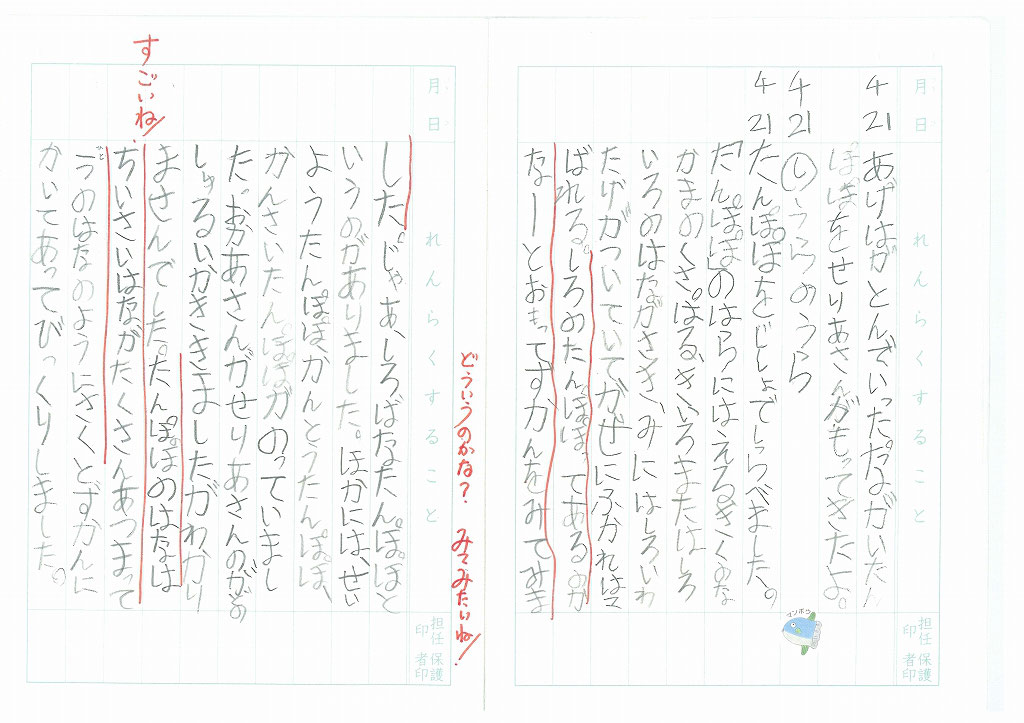 月 日
れんらくすること
4 21
あげはがとんでいった。ながいたん
ぽぽをせりあさんがもってきたよ。
4 21
のうらのうら
4 21
たんぽぽをじしょでしらべました。
「たんぽぽ」のはらにはえるきくのな
かまのくさ。はる、きいろまたはしろ
いろのはながさき、みにはしろいわ
たげがついていてかぜにふかれはこ
ばれる。しろのたんぽぽってあるのか
なーとおもってずかんをみてみま
担任印
保護者印
マンボウ
月 日
れんらくすること
した。じゃあ、しろばなたんぽぽと
いうのがありました。ほかには、せい
ようたんぽぽかんとうたんぽぽ、
かんさいたんぽぽがのっていまし
た。おかあさんがせりあさんのがどの
しゅるいかききましたがわかり
ませんでした。たんぽぽのはなは
ちいさいはながたくさんあつまって
ひとつのはなのようにさくとずかんに
かいてあってびっくりしました。
担任印
保護者印
どういうのかな? みてみたいね!
すごいね!